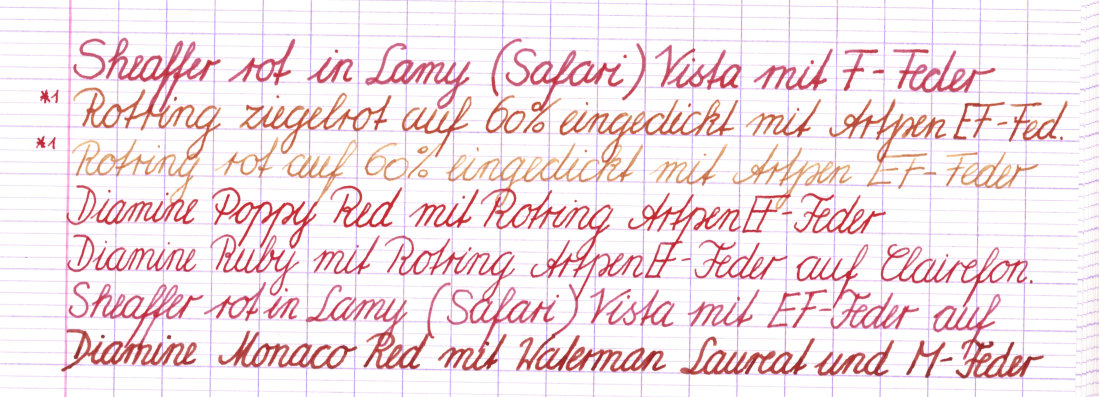 Sheaffer rot in Lamy (Safari) Vista mit F-Feder
*1 Rotring ziegelrot auf 60% eingedickt mit Artpen EF-Fed.
*1 Rotring rot auf 60% eingedickt mit Artpen EF-Feder
Diamine Poppy Red mit Rotring Artpen EF-Feder
Diamine Ruby mit Rotring Artpen EF-Feder auf Clairefon.
Sheaffer rot in Lamy (Safari) Vista mit EF-Feder auf
Diamine Monaco Red mit Waterman Laureat und M-Feder